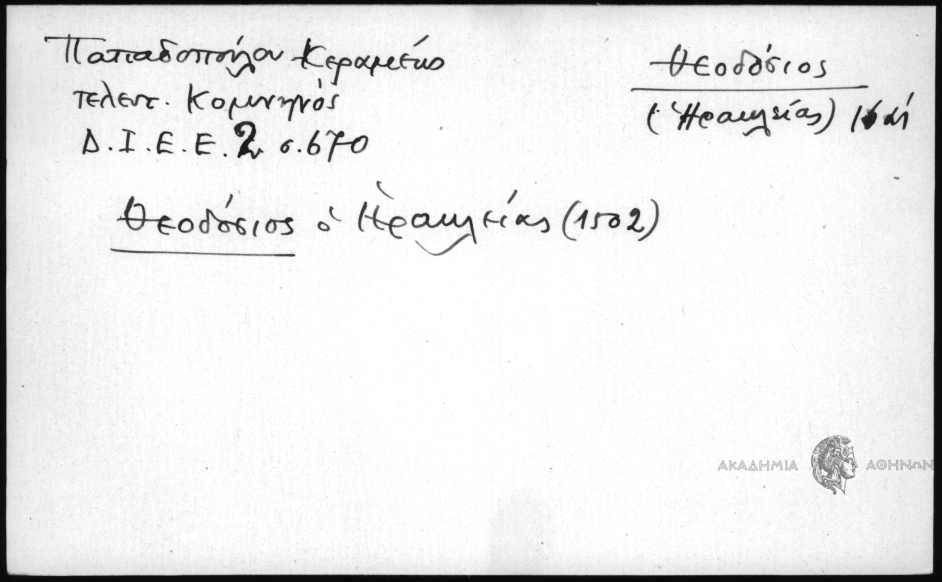 Παπαδοπούλου Κεραμεύς
τελευτ. Κομνηνός
Δ. Ι. Ε. Ε. 2 σ. 670
Θεοδόσιος
(Ἡρακλείας)
Θεοδόσιος ὁ Ἡρακλείας (1502)
ΑΚΑΔΗΜΙΑ ΑΘΗΝΩΝ